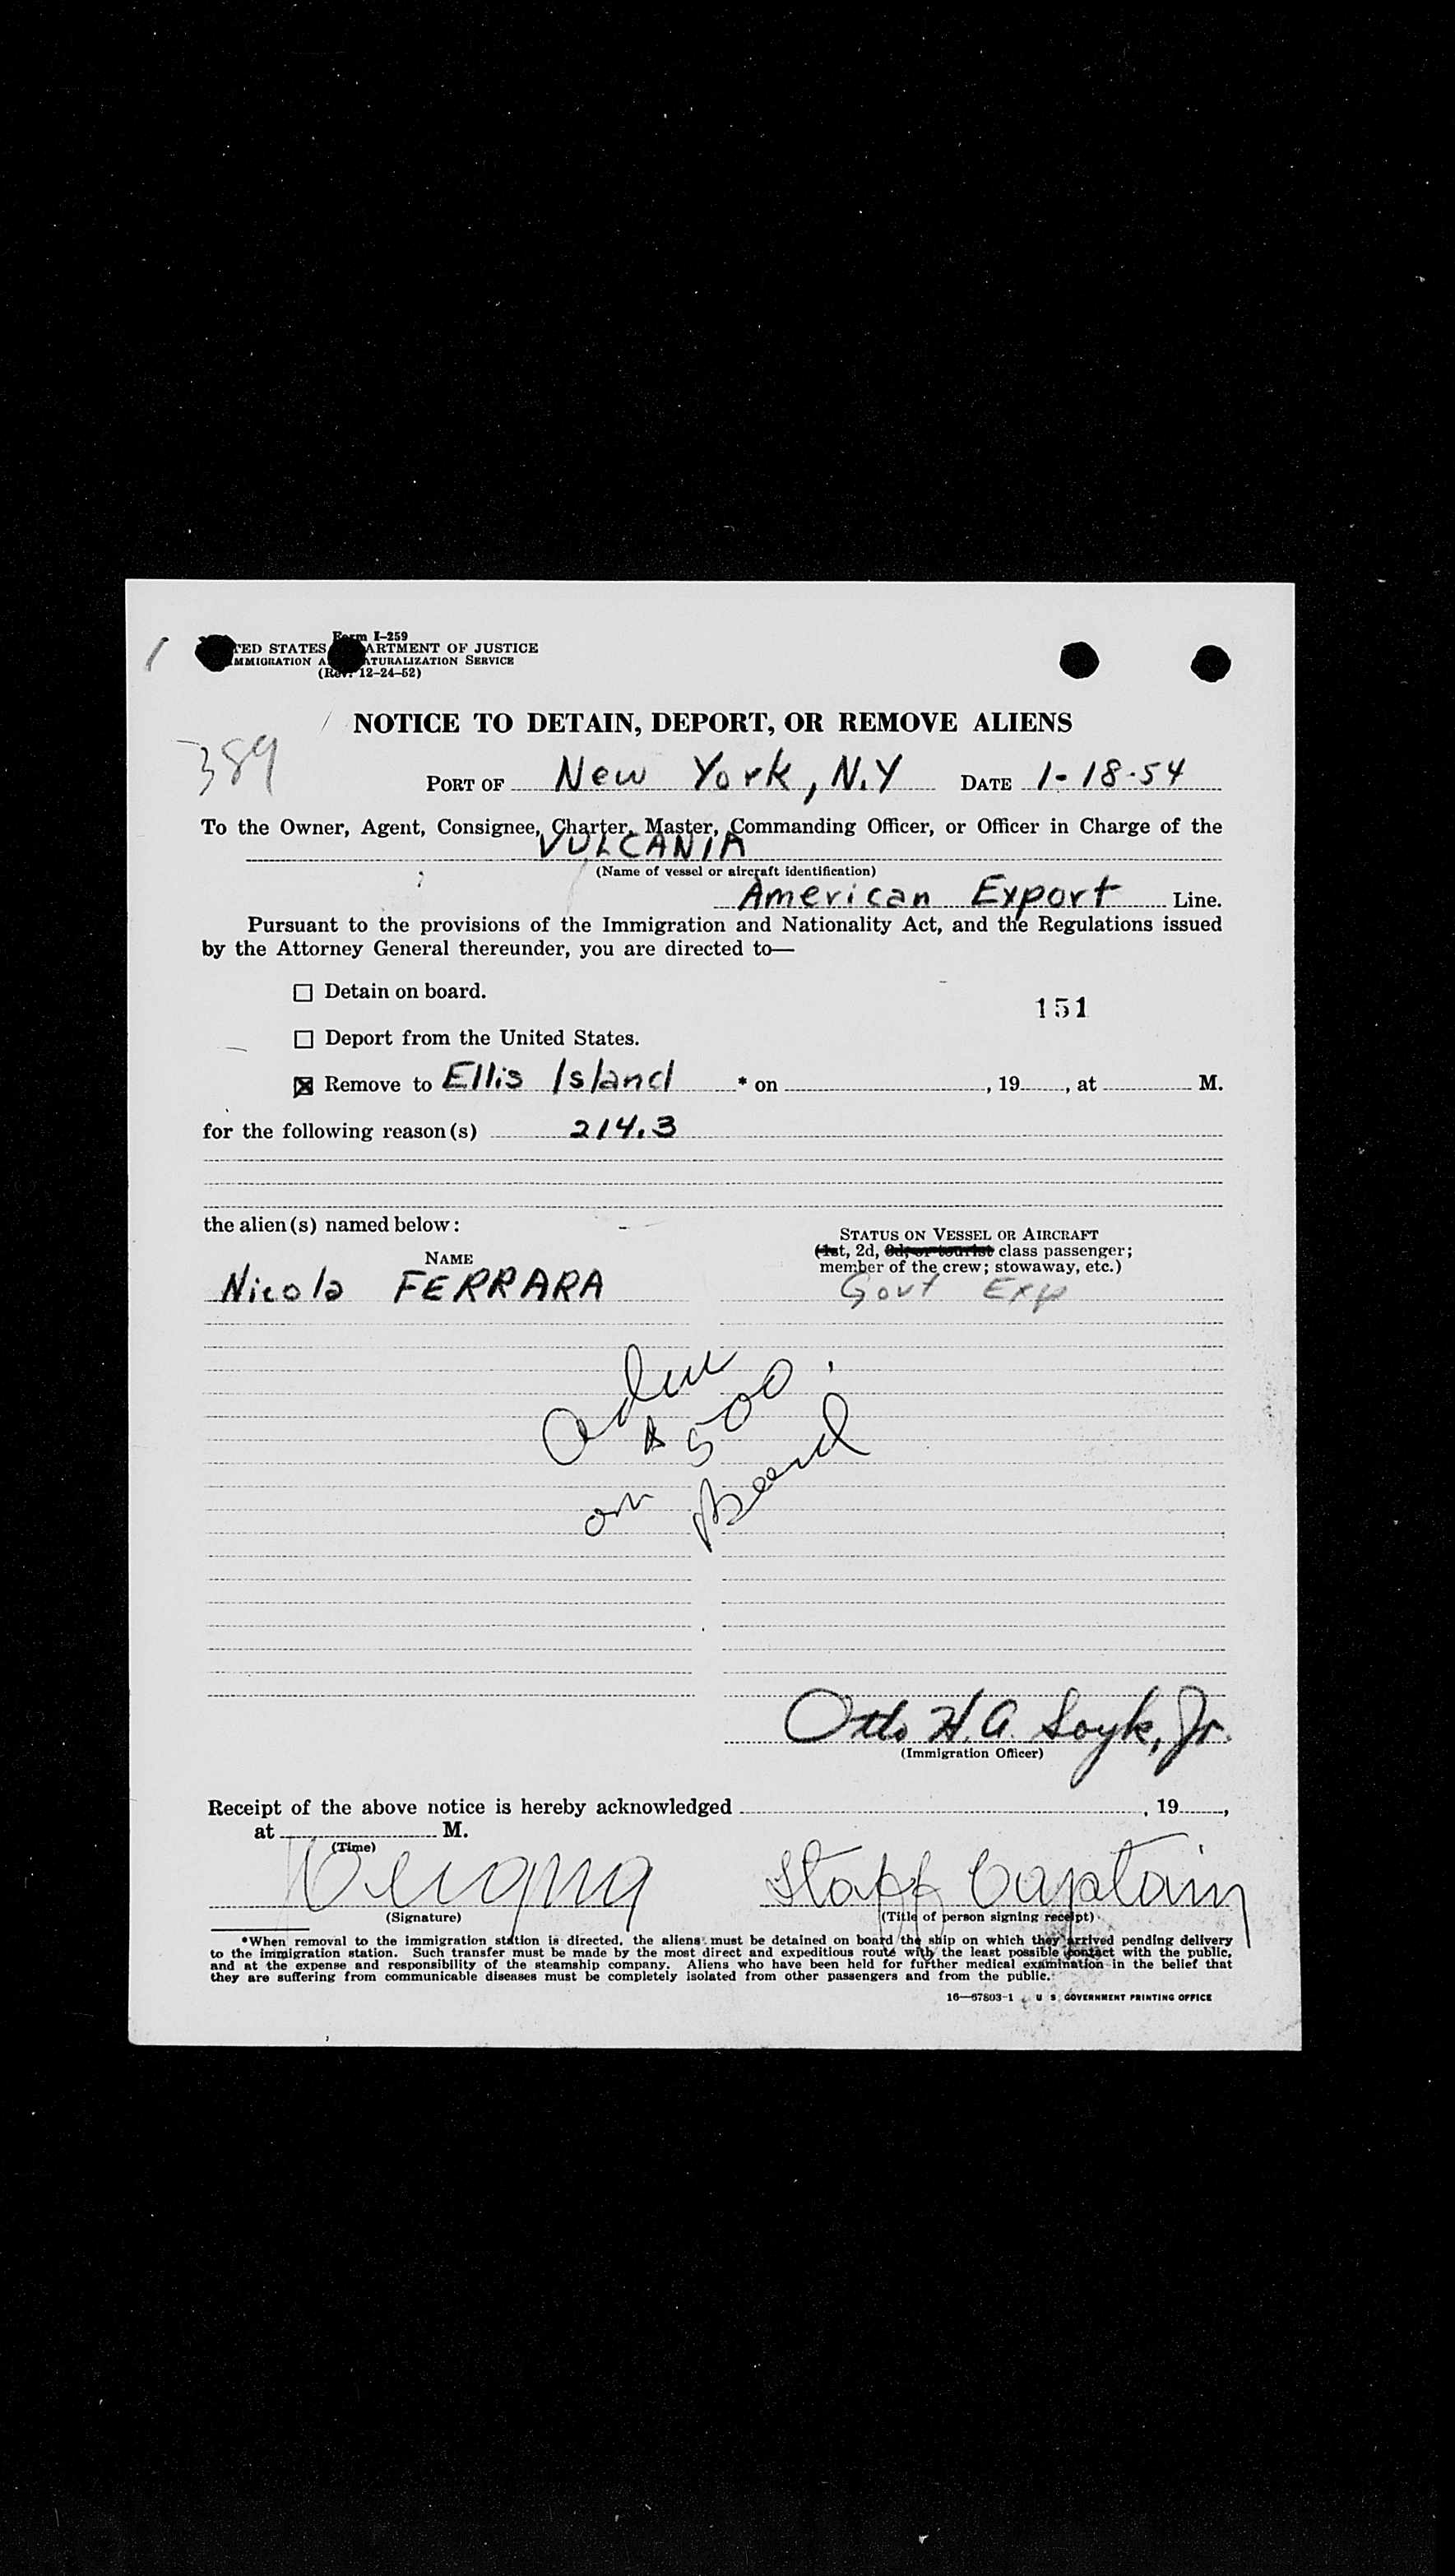 Form I-259
TED STATES ARTMENT OF JUSTICE
MMIGRATION A ATURALIZATION SERVICE
(Rev. 12-24-52)
NOTICE TO DETAIN, DEPORT, OR REMOVE ALIENS
389
PORT OF New York, N.Y DATE 1-18-54
To the Owner, Agent, Consignee, Charter, Master, Commanding Officer, or Officer in Charge of the
VULCANIA
(Name of vessel or aircraft identification)
American Export Line.
Pursuant to the provisions of the Immigration and Nationality Act, and the Regulations issued
by the Attorney General thereunder, you are directed to—
☐ Detain on board.
151
☐ Deport from the United States.
☒ Remove to Ellis Island * on , 19 , at M.
for the following reason(s) 214.3
the alien(s) named below:
STATUS ON VESSEL OR AIRCRAFT
(1st, 2d, 3d, or tourist class passenger;
member of the crew; stowaway, etc.)
NAME
Nicola FERRARA Govt Exp
$500.
on
Otto H. A. Soyk, Jr.
(Immigration Officer)
Receipt of the above notice is hereby acknowledged , 19 ,
at M.
(Time)
Staff Captain
(Signature) (Title of person signing receipt)
*When removal to the immigration station is directed, the aliens must be detained on board the ship on which they arrived pending delivery
to the immigration station. Such transfer must be made by the most direct and expeditious route with the least possible contact with the public,
and at the expense and responsibility of the steamship company. Aliens who have been held for further medical examination in the belief that
they are suffering from communicable diseases must be completely isolated from other passengers and from the public.
16—67803-1 U S GOVERNMENT PRINTING OFFICE